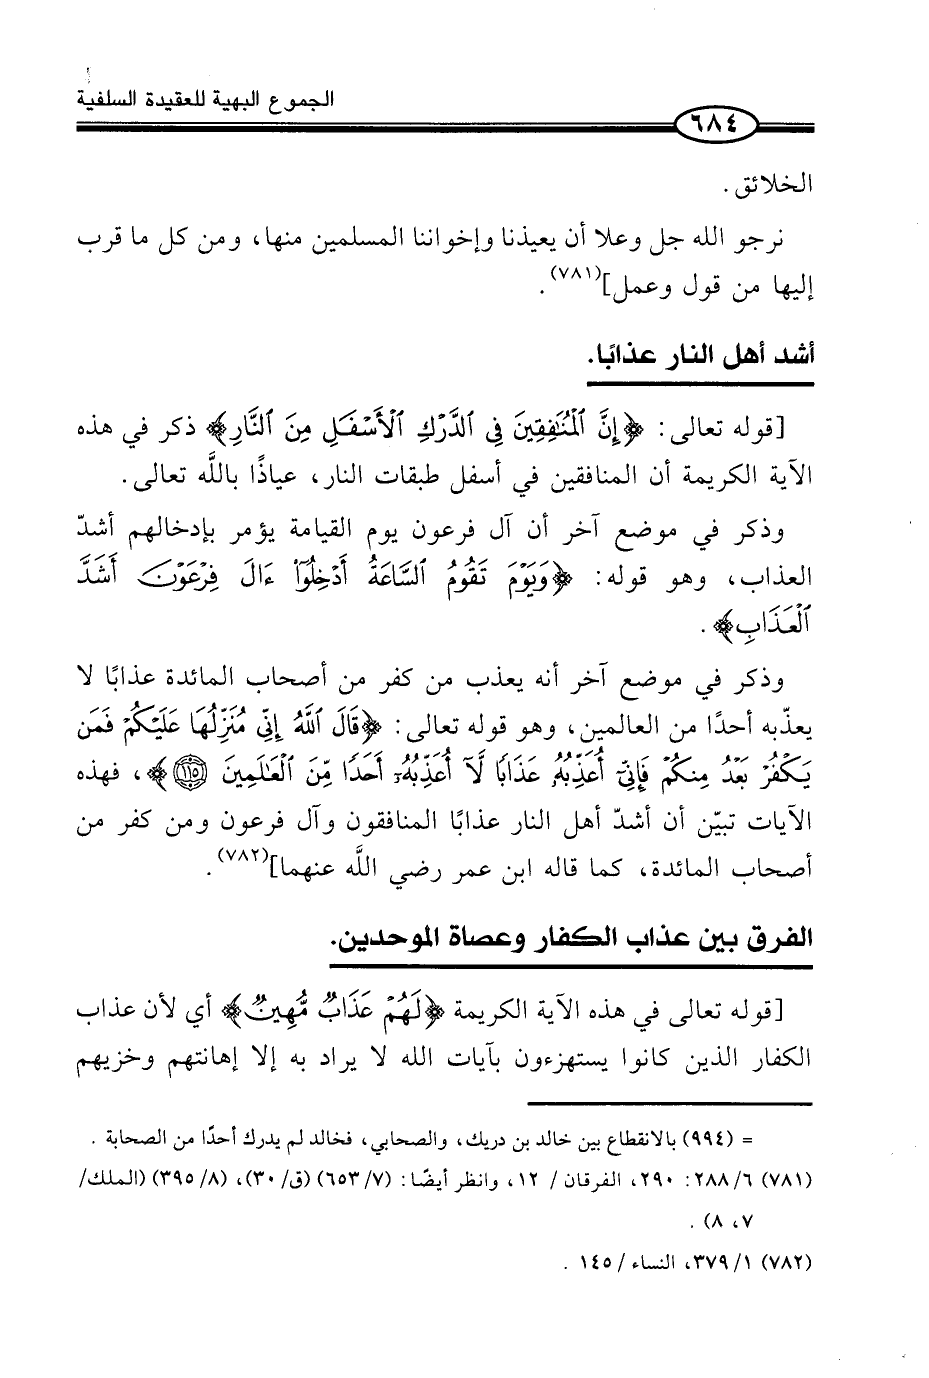 الجموع البهية للعقيدة السلفية
٦٨٤
الخلائق .
نرجو الله جل وعلا أن يعيذنا وإخواننا المسلمين منها، ومن كل ما قرب
إليها من قول وعمل](٧٨١).
أشد أهل النار عذابًا.
[قوله تعالى: ﴿إِنَّ ٱلْمُنَٰفِقِينَ فِى ٱلدَّرْكِ ٱلْأَسْفَلِ مِنَ ٱلنَّارِ﴾ ذكر في هذه
الآية الكريمة أن المنافقين في أسفل طبقات النار، عياذًا باللَّه تعالى.
وذكر في موضع آخر أن آل فرعون يوم القيامة يؤمر بإدخالهم أشدّ
العذاب، وهو قوله: ﴿وَيَوْمَ تَقُومُ ٱلسَّاعَةُ أَدْخِلُوٓا۟ ءَالَ فِرْعَوْنَ أَشَدَّ
ٱلْعَذَابِ﴾ .
وذكر في موضع آخر أنه يعذب من كفر من أصحاب المائدة عذابًا لا
يعذّبه أحدًا من العالمين، وهو قوله تعالى: ﴿قَالَ ٱللَّهُ إِنِّى مُنَزِّلُهَا عَلَيْكُمْ فَمَن
يَكْفُرْ بَعْدُ مِنكُمْ فَإِنِّىٓ أُعَذِّبُهُۥ عَذَابًا لَّآ أُعَذِّبُهُۥٓ أَحَدًا مِّنَ ٱلْعَٰلَمِينَ ١١٥﴾، فهذه
الآيات تبيّن أن أشدّ أهل النار عذابًا المنافقون وآل فرعون ومن كفر من
أصحاب المائدة، كما قاله ابن عمر رضي اللَّه عنهما](٧٨٢).
الفرق بين عذاب الكفار وعصاة الموحدين.
[قوله تعالى في هذه الآية الكريمة ﴿لَهُمْ عَذَابٌ مُّهِينٌ﴾ أي لأن عذاب
الكفار الذين كانوا يستهزءون بآيات الله لا يراد به إلا إهانتهم وخزيهم
= (٩٩٤) بالانقطاع بين خالد بن دريك، والصحابي، فخالد لم يدرك أحدًا من الصحابة .
(٧٨١) ٦/ ٢٨٨: ٢٩٠، الفرقان / ١٢، وانظر أيضًا: (٧/ ٦٥٣) (ق/ ٣٠)، (٨/ ٣٩٥) (الملك/
٧، ٨) .
(٧٨٢) ١/ ٣٧٩، النساء / ١٤٥ .